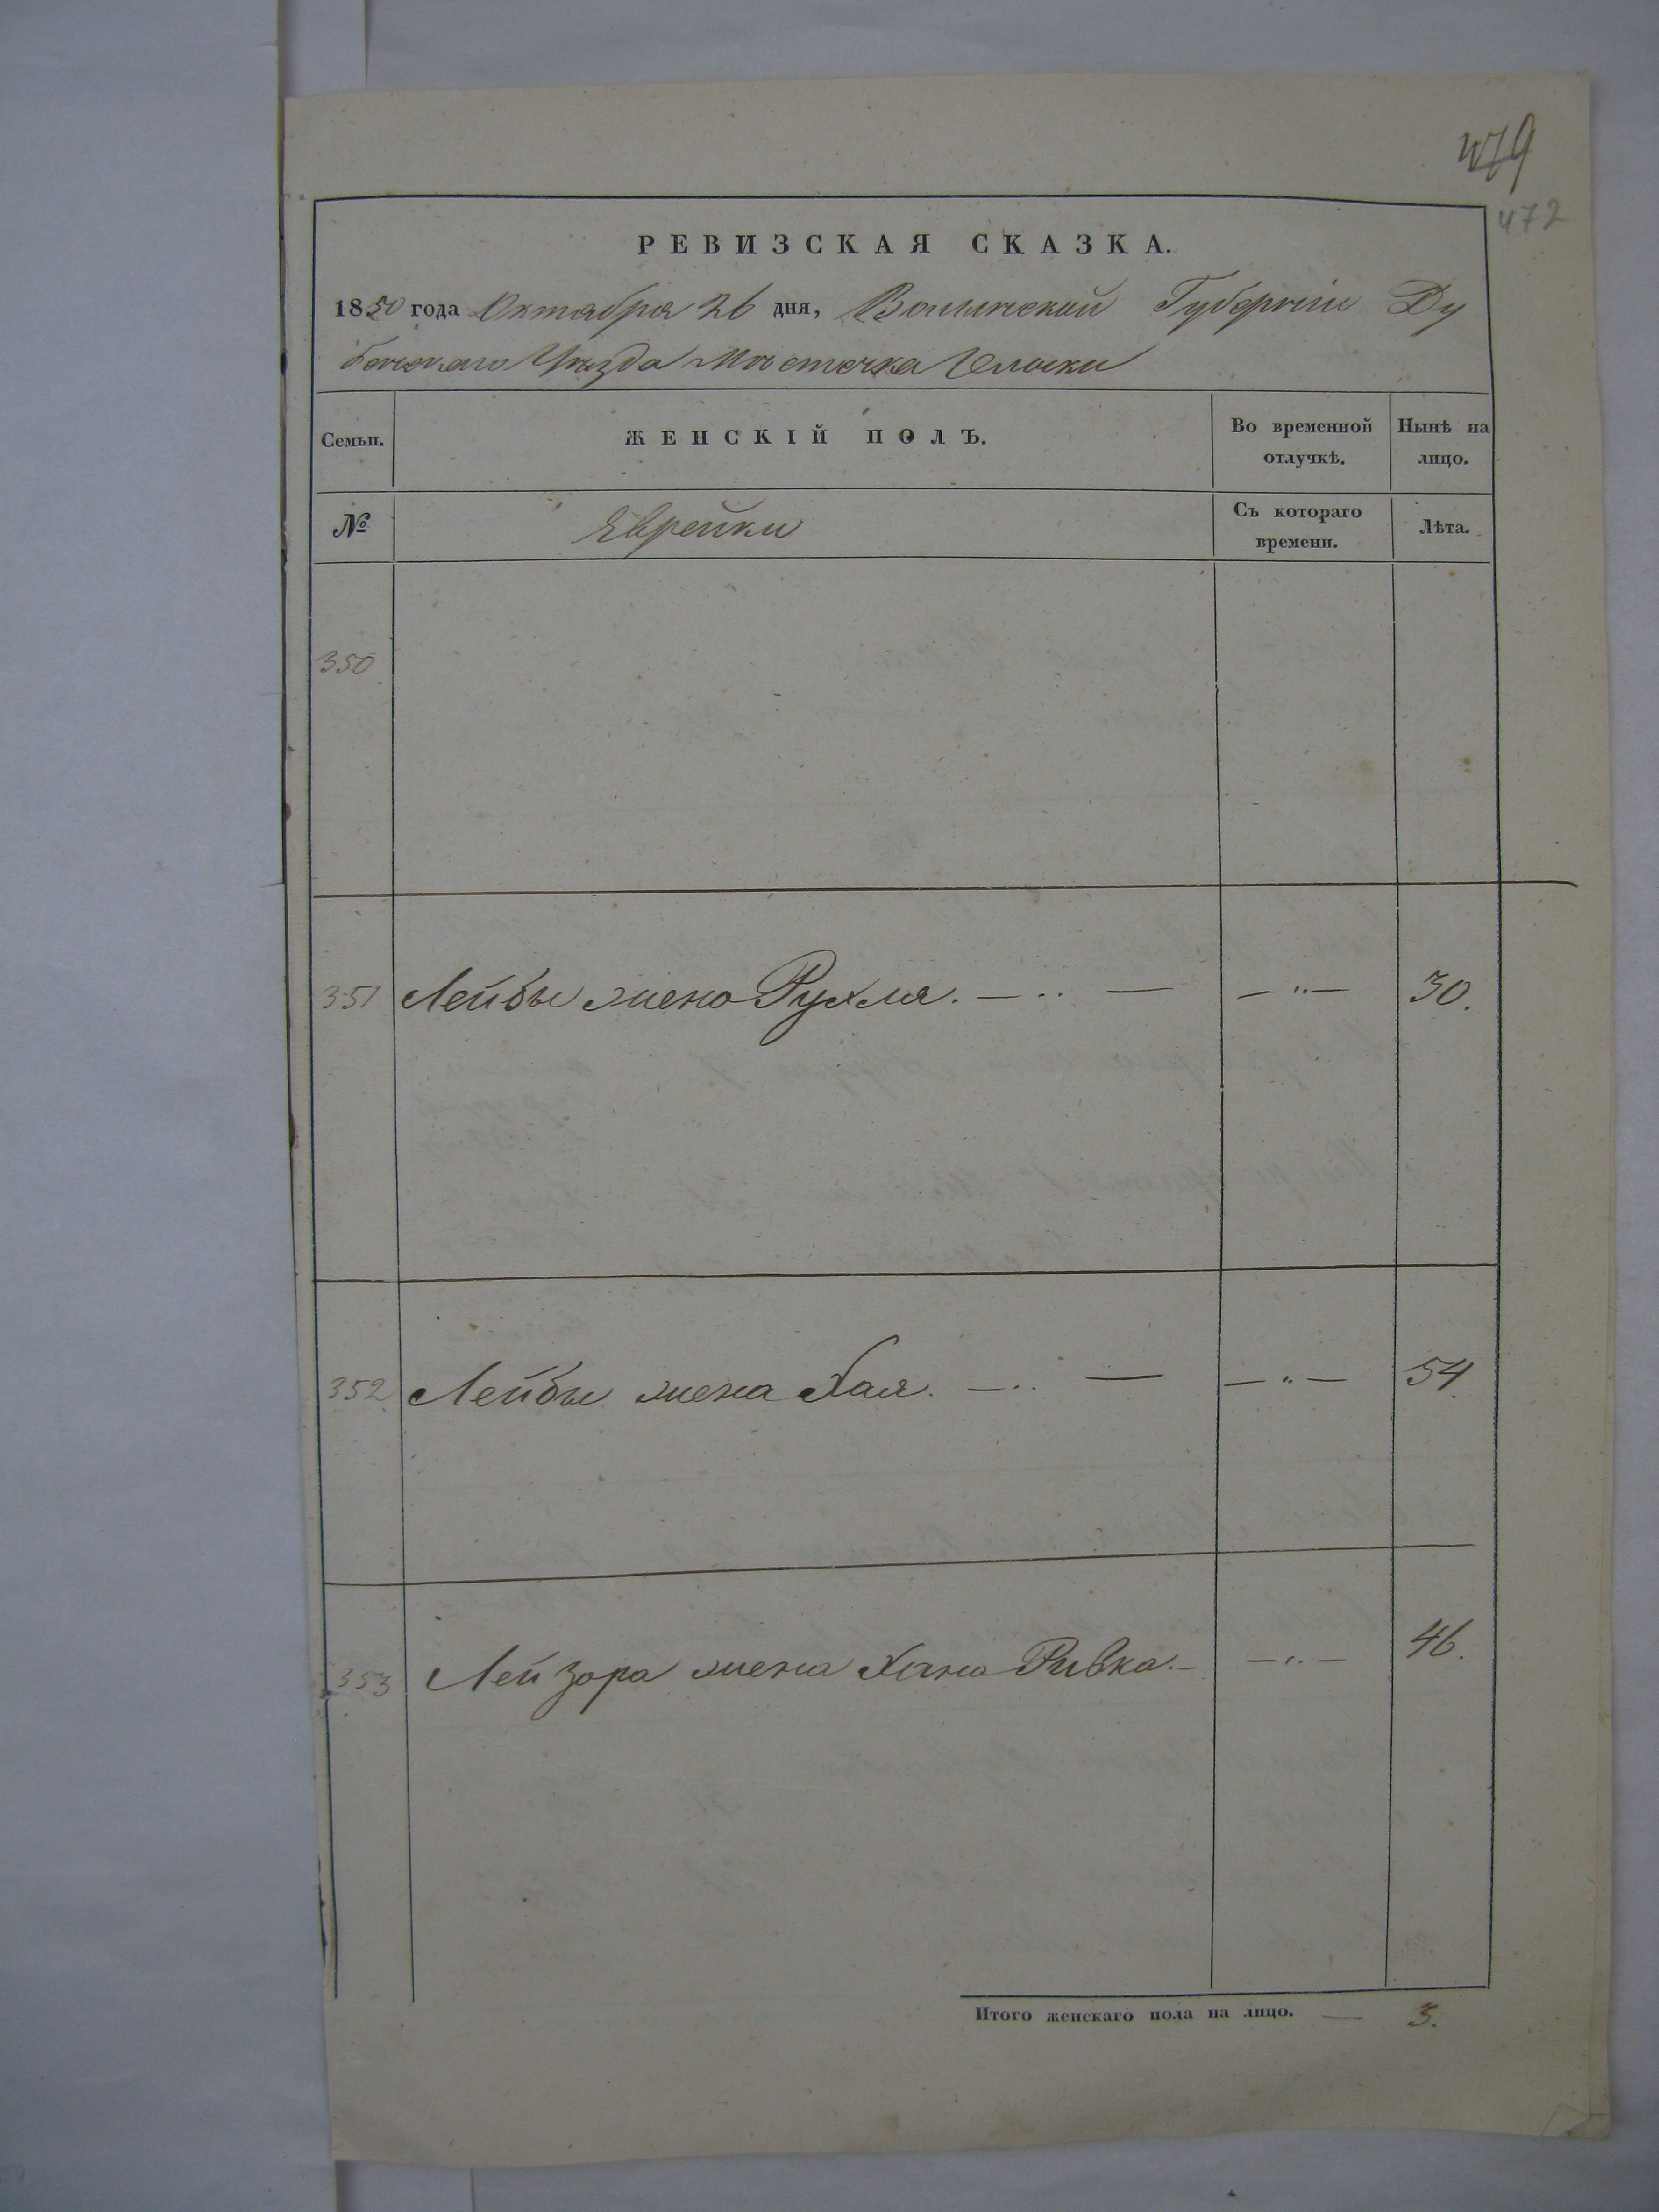 479
472
РЕВИЗСКАЯ СКАЗКА.
1850 года Октября 26 дня, Волынской Губерніи Ду
бенскаго Уѣзда Мѣстечка
Семьи. ЖЕНСКІЙ ПОЛЪ. Во временной отлучкѣ. Нынѣ на лицо.
№ Еврейки Съ котораго времени. Лѣта.
350
351 Лейбы жена Рухля. — .. — — " — 30.
352 Лейбы жена Хая. — .. — — " — 54.
353 Лейзора жена Хана Ривка. — — " — 46.
Итого женскаго пола на лицо. — 3.